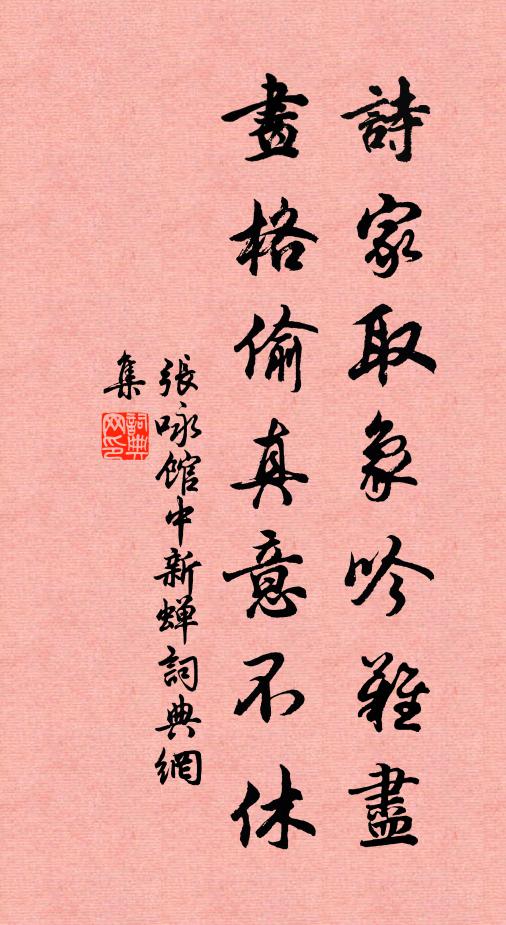 詩家取象吟難盡
畫格偷真意不休
張咏館中新蟬詞典網
集
詞典
网印